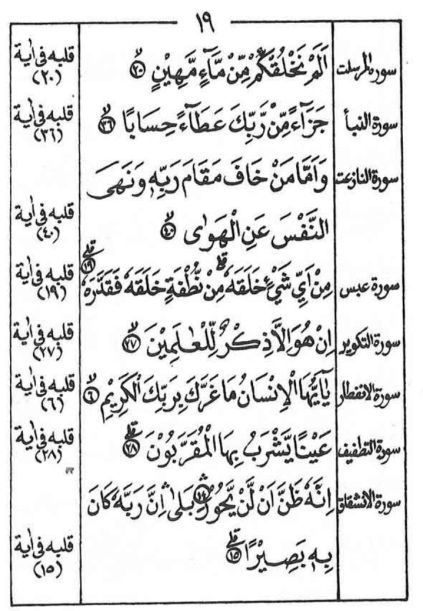 ١٩
سورة المرسلت اَلَمْ نَخْلُقْكُّمْ مِّنْ مَّآءٍ مَّهِيْنٍ ﴿٢٠﴾ قلبه فی اية (٢٠)
سورة النبأ جَزَآءً مِّنْ رَّبِّكَ عَطَآءً حِسَابًا ﴿٣٦﴾ قلبه فی اية (٣٦)
سورة النازعت وَاَمَّا مَنْ خَافَ مَقَامَ رَبِّهٖ وَنَهَى
النَّفْسَ عَنِ الْهَوٰى ﴿٤٠﴾ قلبه فی اية (٤٠)
سورة عبس مِنْ اَيِّ شَيْءٍ خَلَقَهٗ مِنْ نُّطْفَةٍ خَلَقَهٗ فَقَدَّرَهٗ ﴿١٩﴾ قلبه فی اية (١٩)
سورة التكوير اِنْ هُوَ اِلَّا ذِكْرٌ لِّلْعٰلَمِيْنَ ﴿٢٧﴾ قلبه فی اية (٢٧)
سورة الانفطار يٰٓاَيُّهَا الْاِنْسَانُ مَا غَرَّكَ بِرَبِّكَ الْكَرِيْمِ ﴿٦﴾ قلبه فی اية (٦)
سورة التطفيف عَيْنًا يَّشْرَبُ بِهَا الْمُقَرَّبُوْنَ ﴿٢٨﴾ قلبه فی اية (٢٨)
سورة الانشقاق اِنَّهٗ ظَنَّ اَنْ لَّنْ يَّحُوْرَ ﴿١٤﴾ بَلٰى اِنَّ رَبَّهٗ كَانَ
بِهٖ بَصِيْرًا ﴿١٥﴾ قلبه فی اية (١٥)